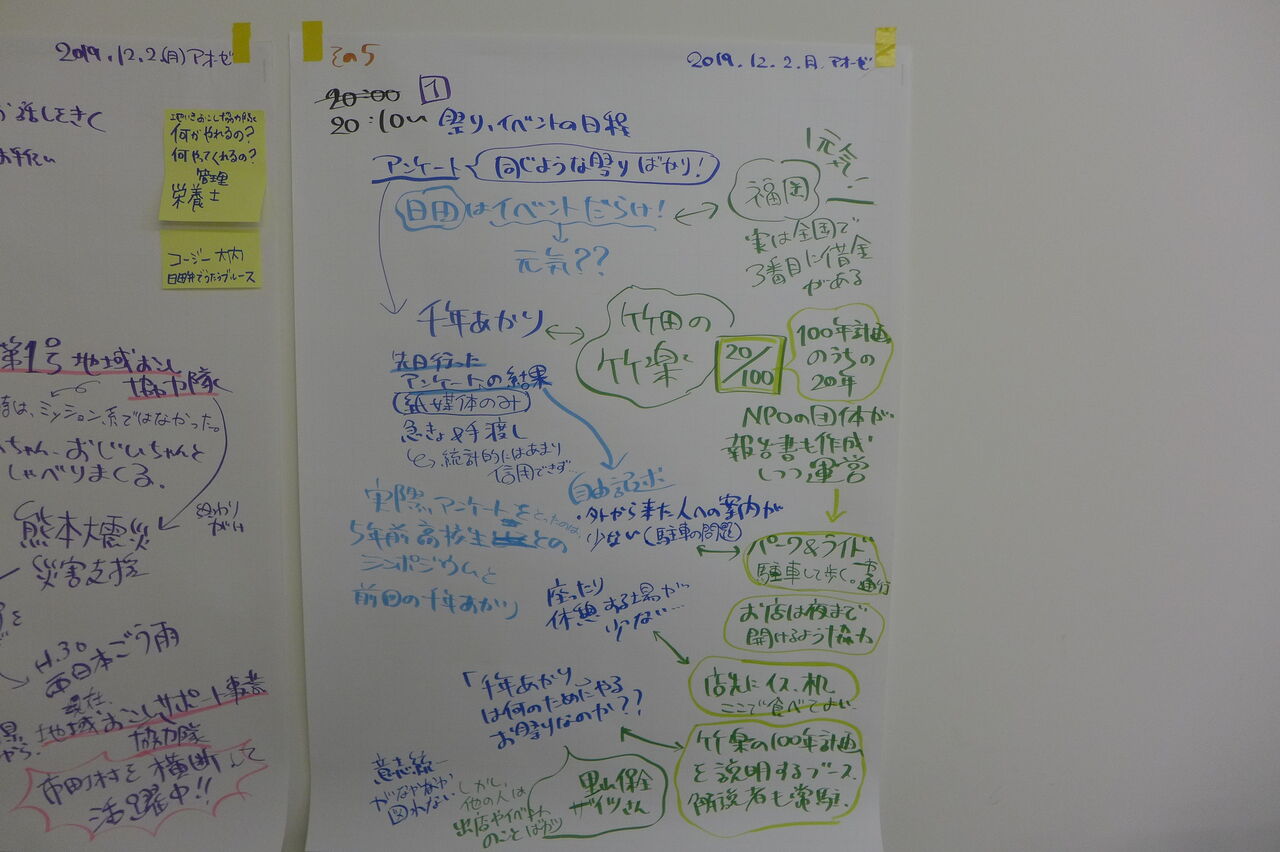 2019.12.2(月)アオーゼ
お話しをきく
お手伝い
地いきおこし協力隊に
何がやれるの?
何やってくれるの?
管理
栄養士
コージー大内
日田弁でうたうブルース
第1号 地域おこし
協力隊
は、ミッション系ではなかった。
ちゃん、おじいちゃんと
しゃべりまくる。
熊本大震災
災害支援
H.30
西日本ごう雨
現在、
地域おこしサポート事業
協力隊
市町村を横断して
活躍中!!
その5
2019.12.2.月.アオーゼ
20:00
1
20:10〜 祭り、イベントの日程
アンケート 同じような祭りばかり!
日田はイベントだらけ!
元気??
元気!
福岡
実は全国で
3番目に借金
がある
千年あかり
竹田の
竹楽
20/100
100年計画
のうちの
20年
先日行った
アンケートの結果
(紙媒体のみ)
急きょ手渡し
統計的にはあまり
信用できず…
NPOの団体が
報告書も作成
しつつ運営
自由記述
・外から来た人への案内が
少ない(駐車の問題)
実際、アンケートをとったのは、
5年前高校生との
シンポジウムと
前回の千年あかり
パーク&ライド
駐車して歩く。
お店は夜まで
開けるよう協力
座ったり
休憩する場が
少ない…
店先にイス、机
ここで食べてよい
「千年あかり」
は何のためにやる
お祭りなのか??
竹楽の100年計画
を説明するブース。
解説者も常駐.
里山保全
ザイツさん
意志統一
がなかなか
図れない
しかし、
他の人は
出店やイベント
のことばかり